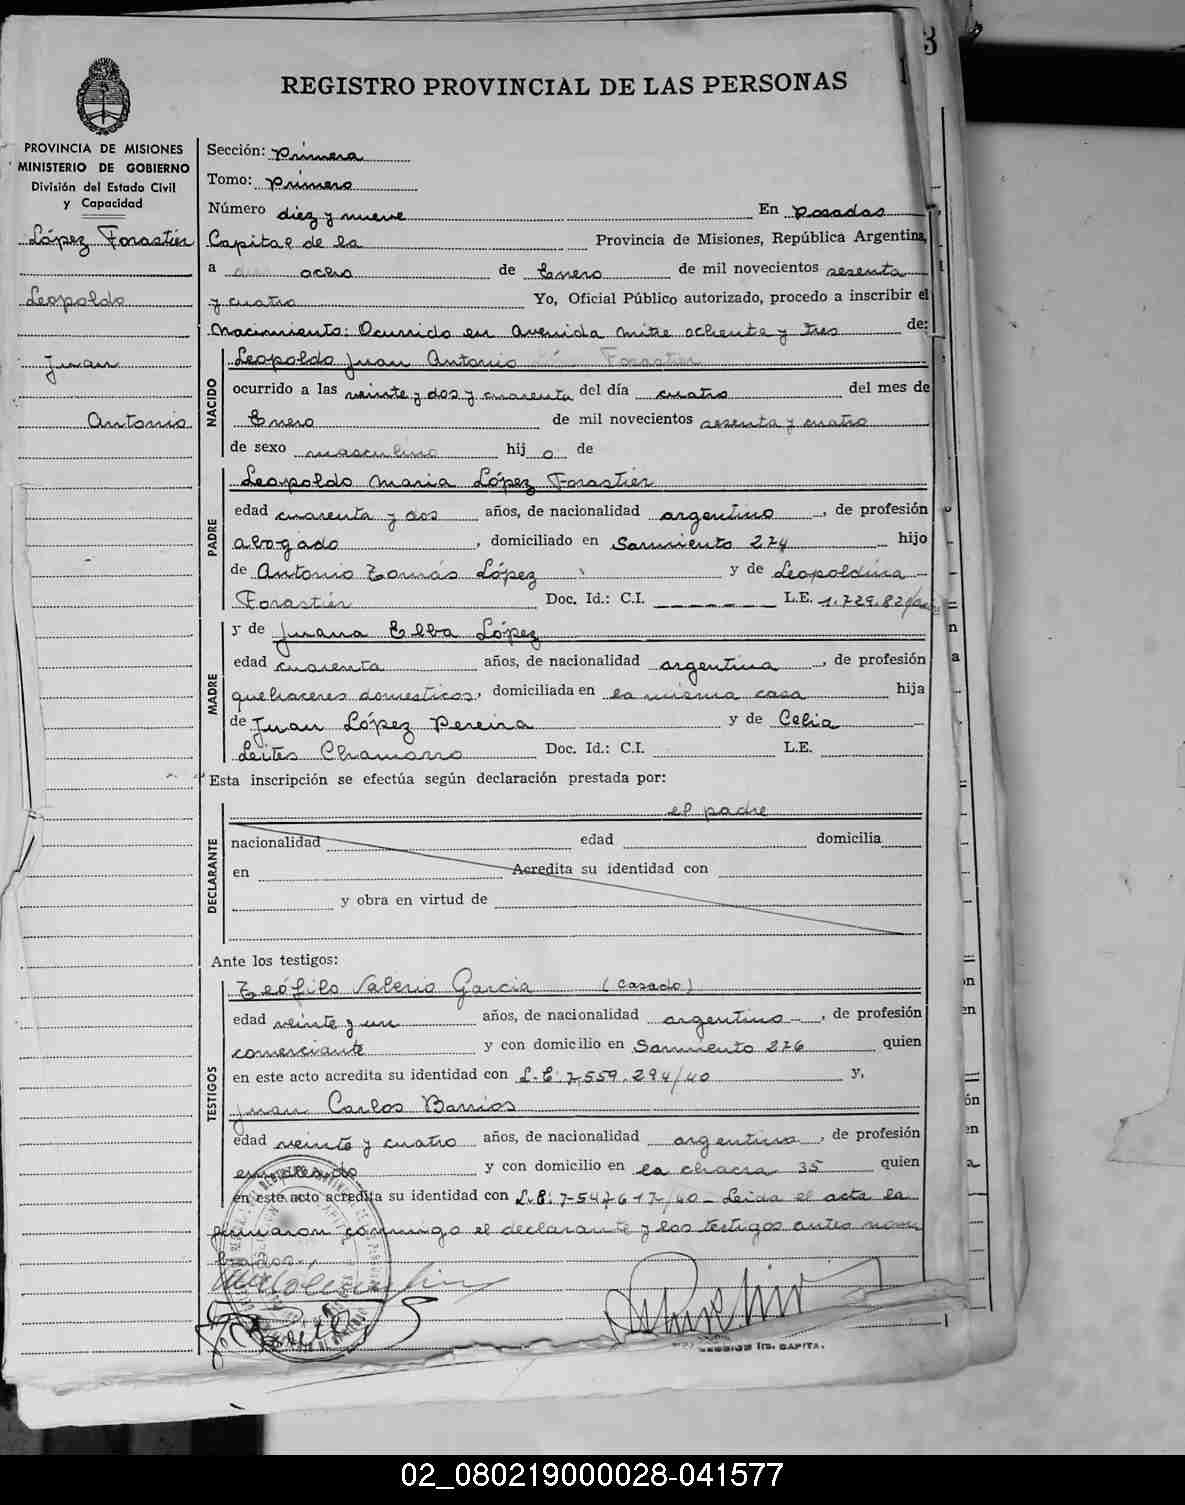 3
1
REGISTRO PROVINCIAL DE LAS PERSONAS
PROVINCIA DE MISIONES
MINISTERIO DE GOBIERNO
División del Estado Civil
y Capacidad
López Forastiér
Leopoldo
Juan
Antonio
Sección: Primera
Tomo: Primero
Número diez y nueve En Posadas
Capital de la Provincia de Misiones, República Argentina,
a ocho de Enero de mil novecientos sesenta
y cuatro Yo, Oficial Público autorizado, procedo a inscribir el
Nacimiento: Ocurrido en Avenida Mitre ochenta y tres de:
NACIDO
Leopoldo Juan Antonio Forastiér
ocurrido a las veinte y dos y cuarenta del día cuatro del mes de
Enero de mil novecientos sesenta y cuatro
de sexo masculino hij o de
PADRE
Leopoldo Maria López Forastiér
edad cuarenta y dos años, de nacionalidad argentino, de profesión
abogado, domiciliado en Sarmiento 274 hijo
de Antonio Tomás López y de Leopoldina
Forastiér Doc. Id.: C.I. L.E. 1.729.82
MADRE
y de Juana Elba López
edad cuarenta años, de nacionalidad argentina, de profesión
quehaceres domesticos, domiciliada en la misma casa hija
de Juan López Pereira y de Celia
Leites Chamorro Doc. Id.: C.I. L.E.
Esta inscripción se efectúa según declaración prestada por:
DECLARANTE
el padre
nacionalidad edad domicilia
en Acredita su identidad con
y obra en virtud de
Ante los testigos:
TESTIGOS
Teófilo Valerio Garcia (casado)
edad veinte y un años, de nacionalidad argentino, de profesión
comerciante y con domicilio en Sarmiento 276 quien
en este acto acredita su identidad con L.E: 7.559.294/40 y,
Juan Carlos Barrios
edad veinte y cuatro años, de nacionalidad argentino, de profesión
empleado y con domicilio en la chacra 35 quien
en este acto acredita su identidad con L.E: 7-547617/40- Leida el acta la
firmaron conmigo el declarante y los testigos antes nom
brados.
02_080219000028-041577